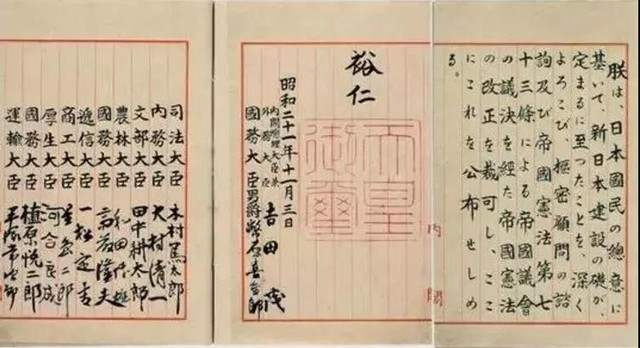 朕は、日本國民の總意に
基いて、新日本建設の礎が、
定まるに至つたことを、深く
よろこび、樞密顧問の諮
詢及び帝國憲法第七
十三條による帝國議會
の議決を経た帝國憲法
の改正を裁可し、ここ
にこれを公布せしめ
る。
内閣
裕仁
天皇
御璽
昭和二十一年十一月三日
内閣總理大臣兼
外務大臣 吉田茂
國務大臣 男爵 幣原喜重郎
司法大臣 木村篤太郎
内務大臣 大村清一
文部大臣 田中耕太郎
農林大臣 和田博雄
國務大臣 斎藤隆夫
遞信大臣 一松定吉
商工大臣 星島二郎
厚生大臣 河合良成
國務大臣 植原悦二郎
運輸大臣 平塚常次郎